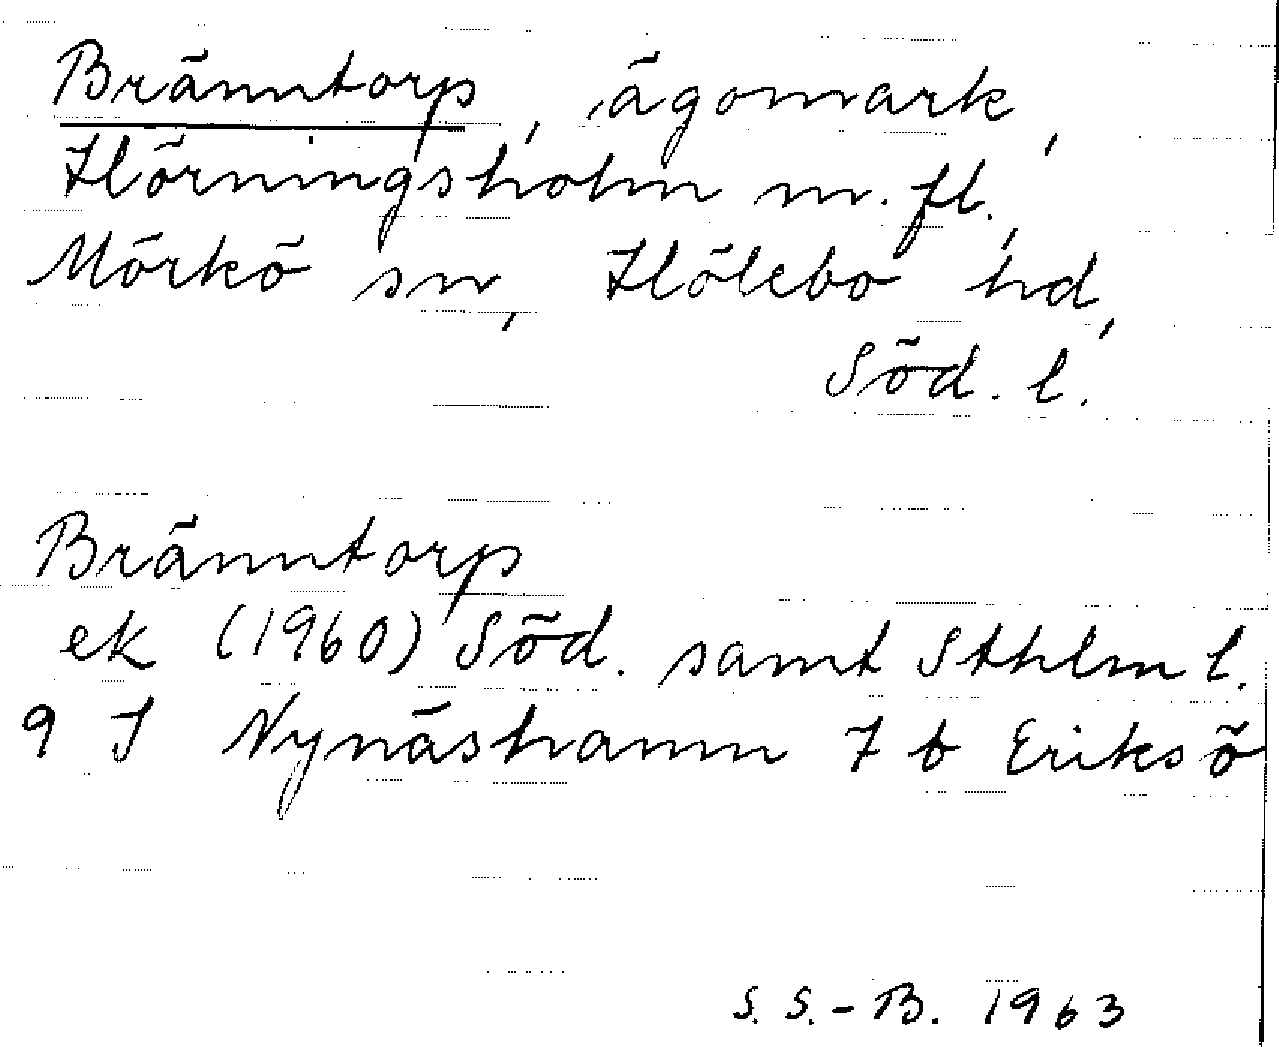 Bränntorp, ägomark,
Hörningsholm m. fl.,
Mörkö sn, Hölebo hd,
Söd. l.
Bränntorp
ek (1960) Söd. samt Sthlm l.
9 I Nynäshamn 7 b Eriksö
S. S.-B. 1963